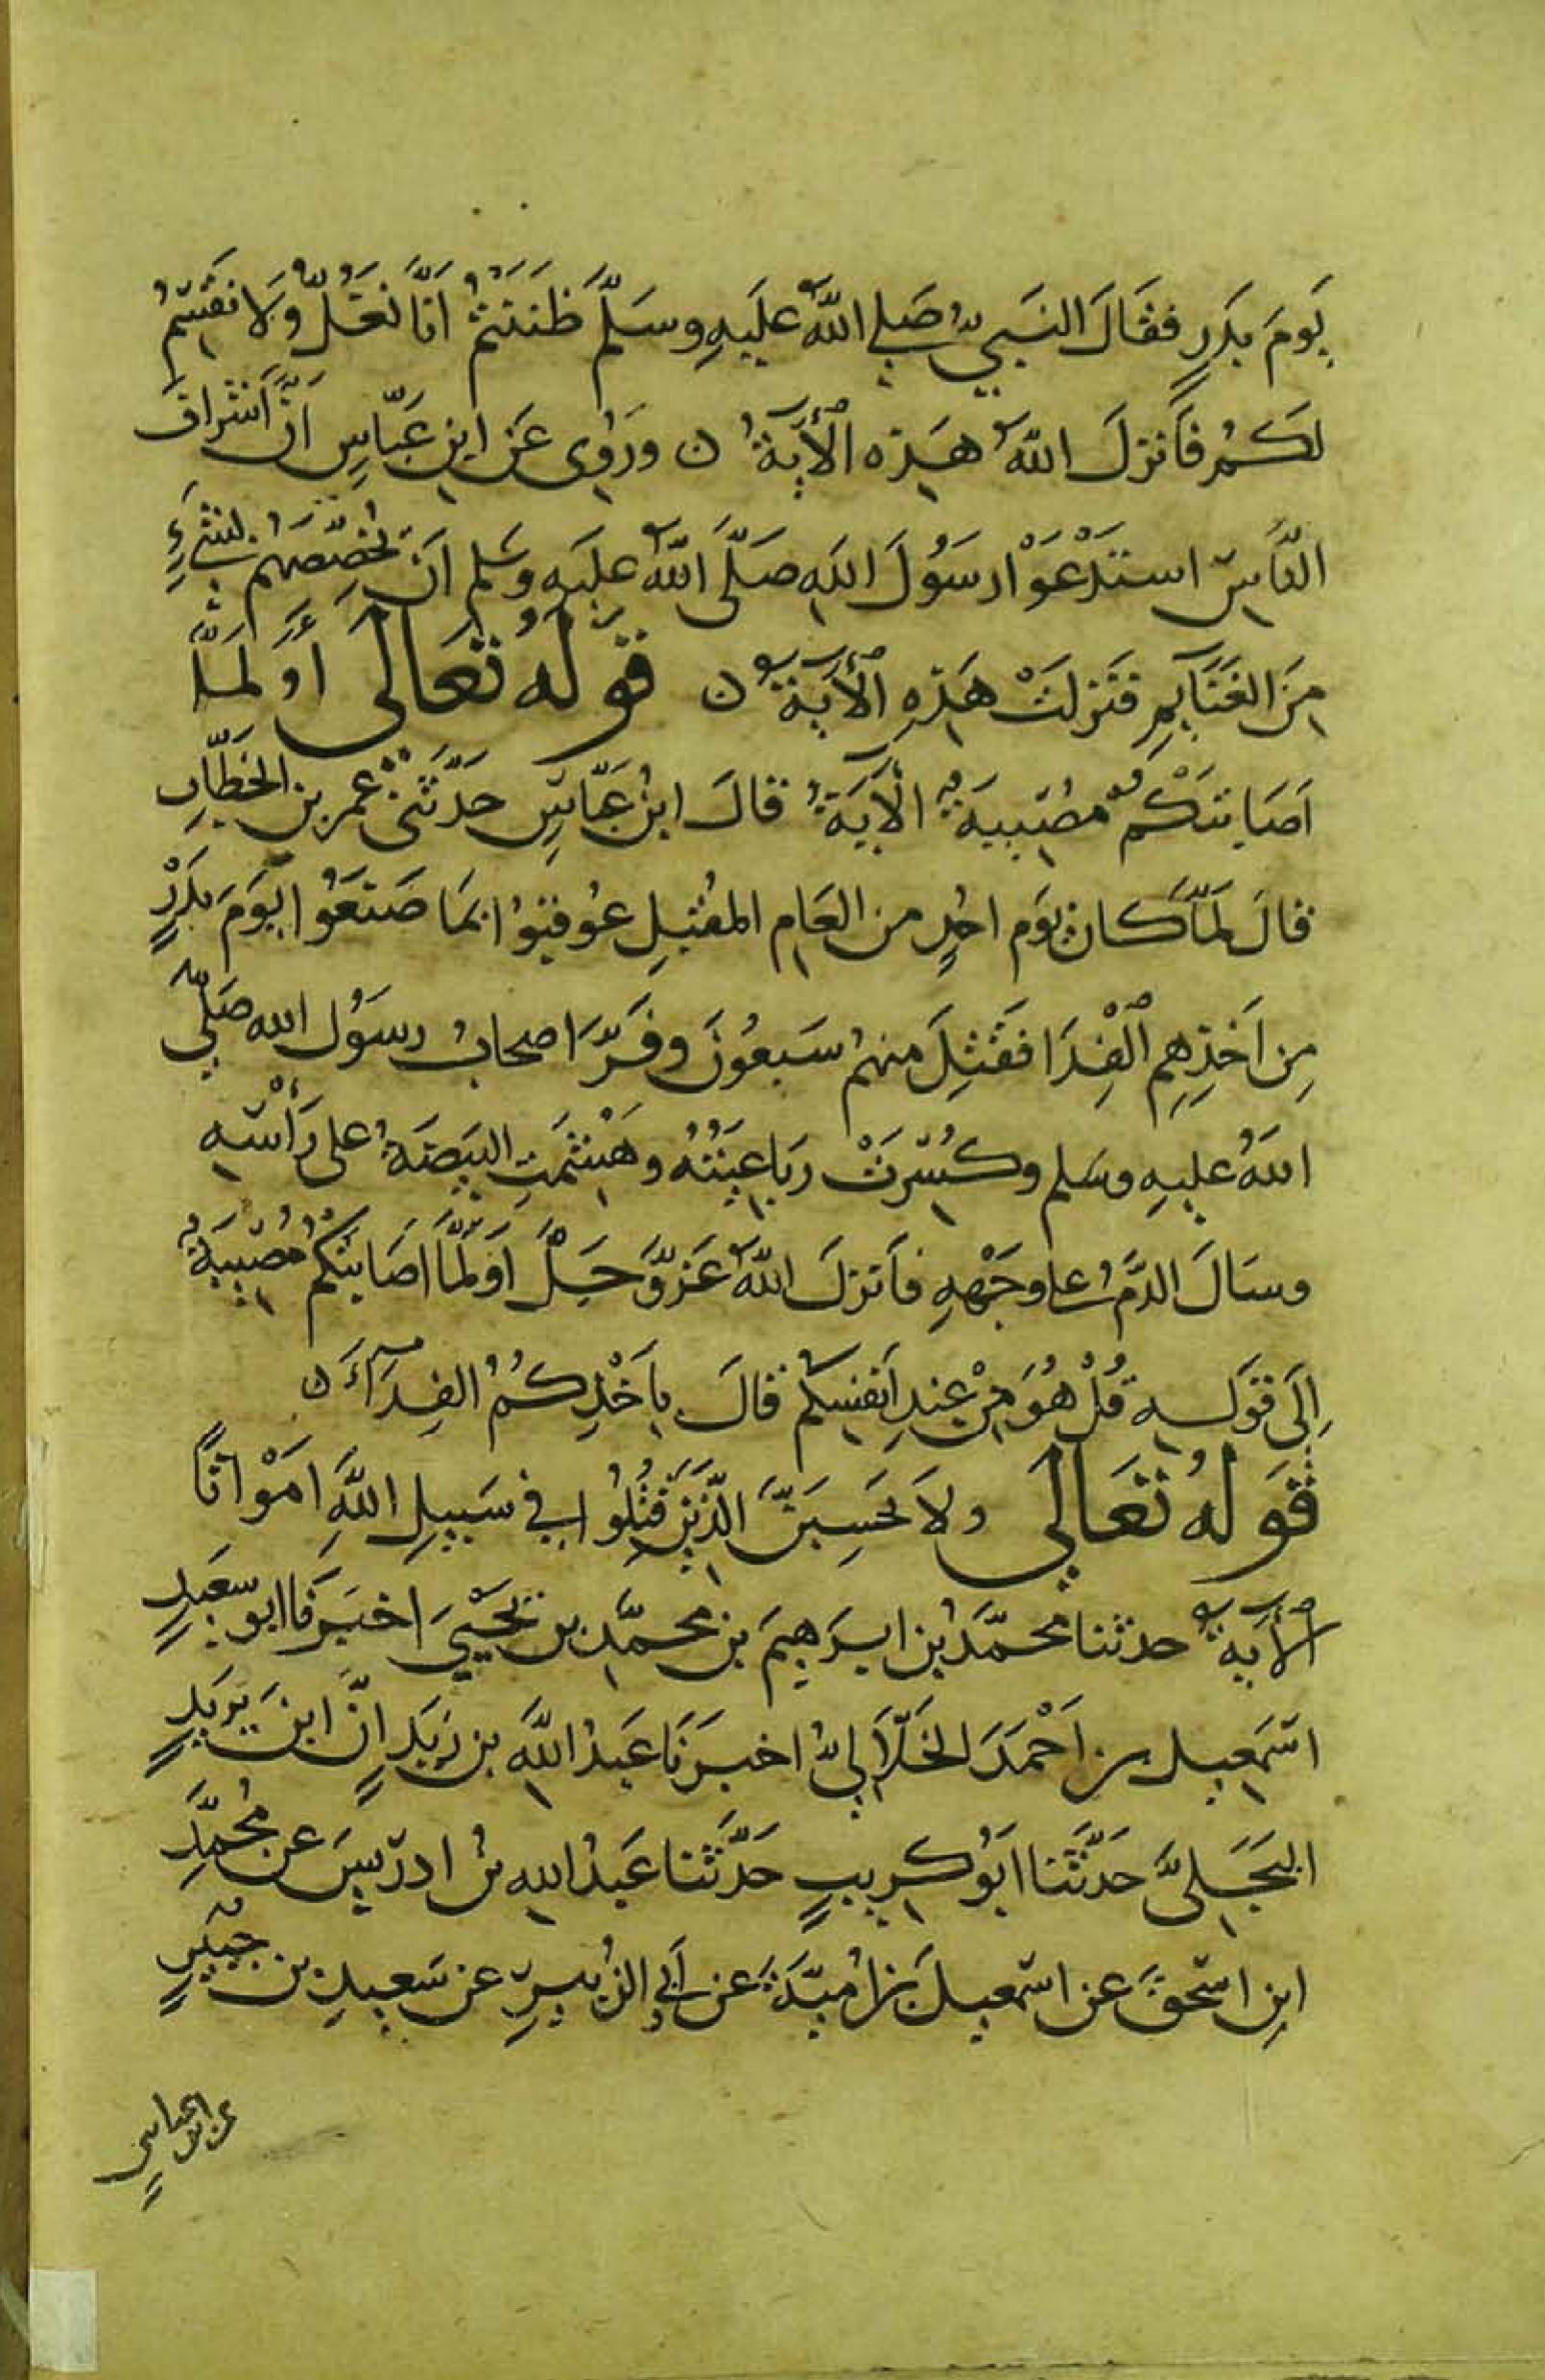 يَومَ بَدَرٍ فقَالَ النَبي صَلى اللّٰهُ عَليَهِ وسَلمَّ ظَنَنتمُ انَّا نَغُلُّ وَلا نقَسِمُ
لكَمُ فَانزلَ اللّٰهُ هَذِه الاٰيَةُ ن ورَوُى عَن ابنِ عَبّاسٍ انَّ اَشرافَ
النَّاسِ استَدْعَوْا رسَوُلَ اللهِ صَلَّى اللّٰهُ عليَهِ وسَلم ان يُخَصِّصَهُم بشَيءٍ
مِنَ الغَنَايمِ فنَزلَتْ هَذِهِ الاٰيَةُ ن قَولُهُ تَعَالَى اَوَ لَمَّا
اَصَابتَكْمُ مصُيبَةٌ الآيَةُ قالَ ابنُ عَبّاسٍ حَدَّثنى عمَر بن الخَطّابِ
قالَ لمَّا كان يَوم احُدٍ من العَامِ المُقبِلِ عُوقبُوا بمَا صَنَعُوا يَومَ بَدْرٍ
مِن اَخذِهِم الْفِدَا فقَتِلَ منهمُ سَبعُونَ وفَرَّ اصحابُ رسوُل الله صَلّى
اللهُ عليهِ وسَلم وكُسِرَتْ رباعِيَتُهُ وهَشِمَتِ البيَضَةُ على رَأسِهِ
وسَالَ الدَّمُ على وجَهْهِ فاَنزلَ اللّٰهُ عَزوَّجَلَّ اَولَمَّا اصَابتكُمْ مُصيبَةٌ
اِلَى قَولِهِ قُلْ هُوَ مِنْ عِندِ اَنفسِكُم قالَ باَخْذِكُمُ الفِدَآءَ ن
قَولُهُ تَعَالى ولاَ تحَسِبَنَّ الَّذِينَ قُتِلُوا في سَبيلِ اللّٰهِ امَوْاتاً
الاٰيَةُ حدثنا محمَّدُ بن ابرَهِيمَ بن محمَّدِ بن يَحْيىَ اخبَرَنا ابو سعَيدٍ
اسمَعِيل بن اَحْمَدَ الخَلّاَليُّ اخبَرَنَا عَبدُ اللّٰهِ بن زَيَدٍ انَّ ابنَ يزيَدٍ
البَجَليَّ حَدثَّنا ابَوُ كرِيبٍ حَدَّثنا عَبدُ اللهِ بنُ ادرَيسَ عن مُحمَّدِ
ابنِ اسحٰقَ عن اسمعِيلَ بن امُيَّةَ عن اَبى الزُبيرِ عن سَعيدِ بن جبُيَرٍ
عن ابن عباسٍ